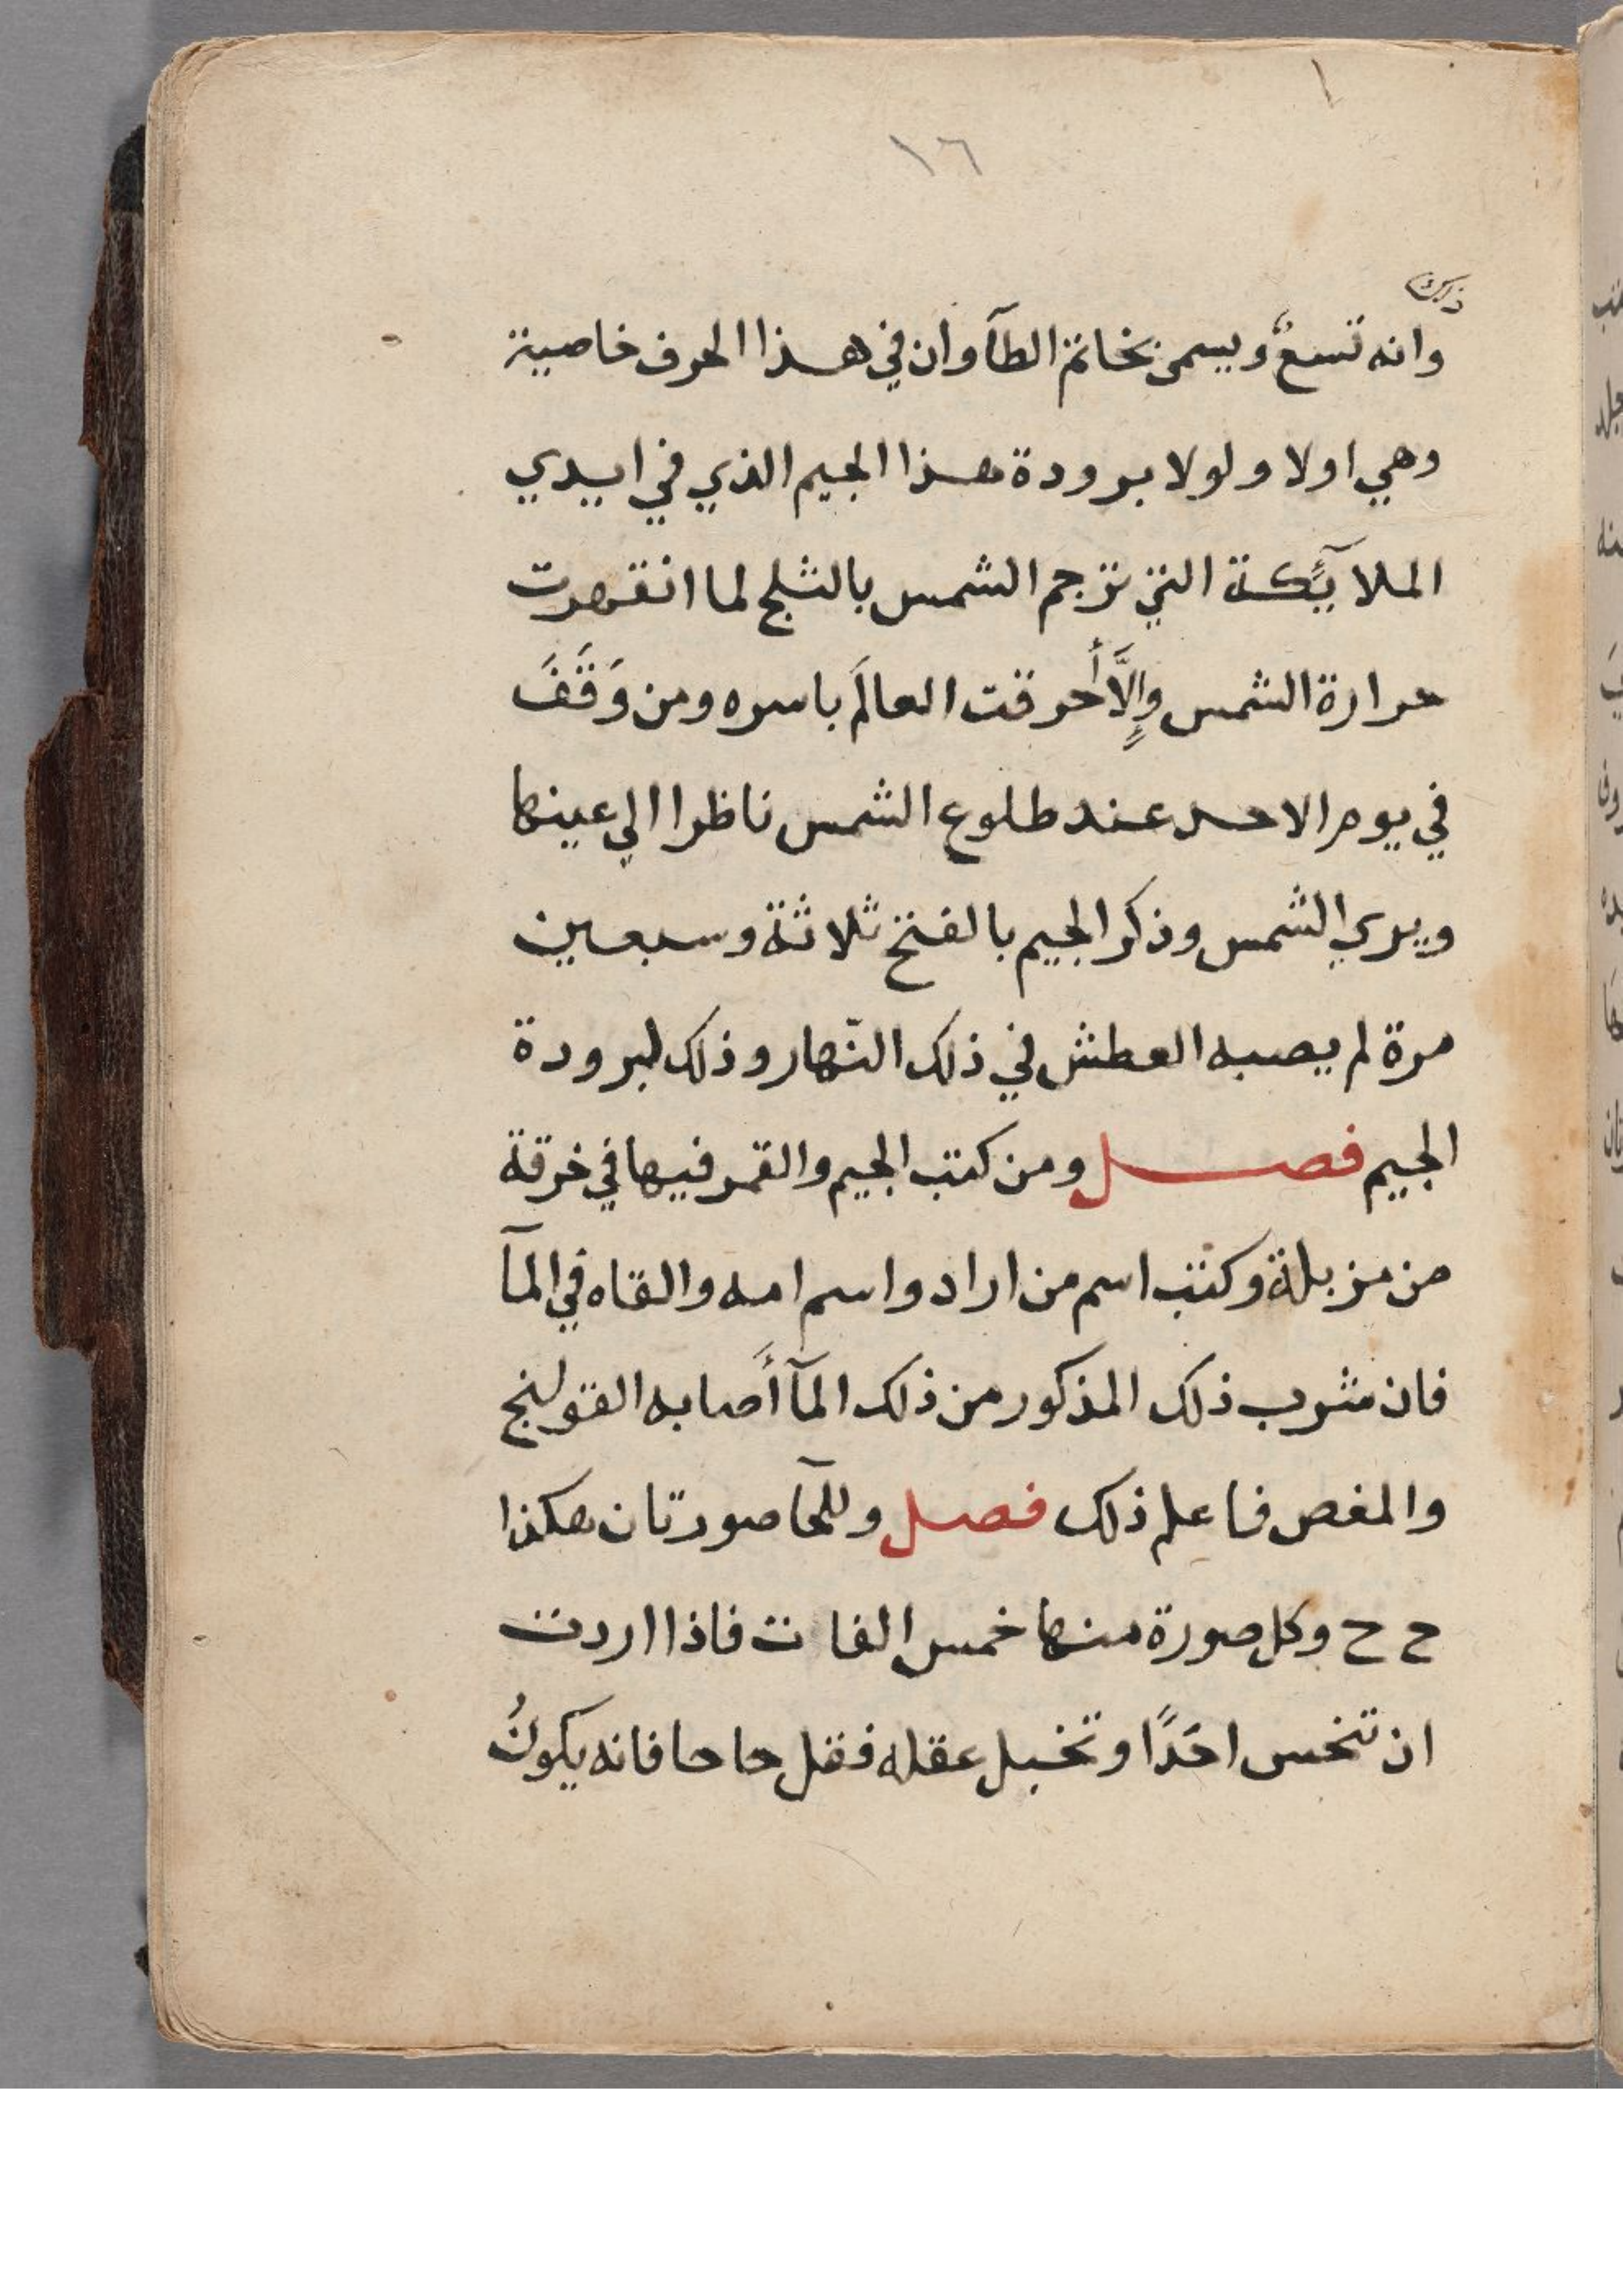 ١٦
وانه تسعٌ ويسمى بخاتم الطآ وان في هذا الحرف خاصية
وهي اولا ولولا برودة هذا الجيم الذي في ايدي
الملآئكة التي ترجم الشمس بالثلج لما انقهرت
حرارة الشمس وإلَّا أحرقت العالَم باسره ومن وَقَفَ
في يوم الاحد عند طلوع الشمس ناظرا الي عينها
ويري الشمس وذكر الجيم بالفتح ثلاثة وسبعين
مرة لم يصبه العطش في ذلك النّهار وذلك لبرودة
الجيم فصل ومن كتب الجيم والقمر فيها في خرقة
من مزبلة وكتب اسم من اراد واسم امه والقاه في المآ
فان شرب ذلك المذكور من ذلك المآ أَصابه القولنج
والمغص فاعلم ذلك فصل وللحآ صورتان هكذا
ح ح وكل صورة منها خمس الفات فاذا اردت
ان تنحس احَدًا وتخبل عقله فقل حا حا فانه يكونُ